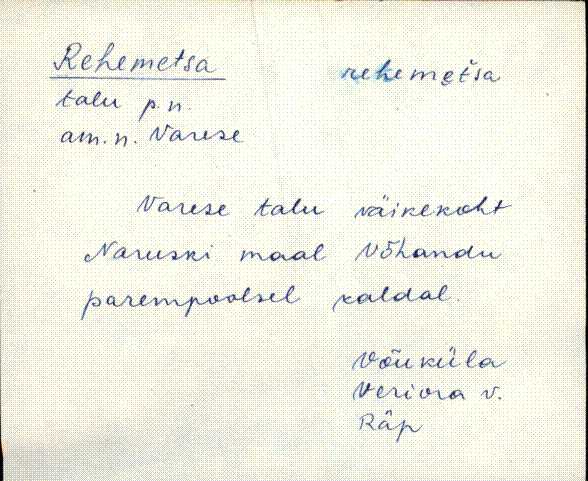 Rehemetsa
rehemeťsa
talu p.n.
am.n. Varese
Varese talu väikekoht
Naruski maal Võhandu
parempoolsel kaldal.
Võuküla
Veriora v.
Räp